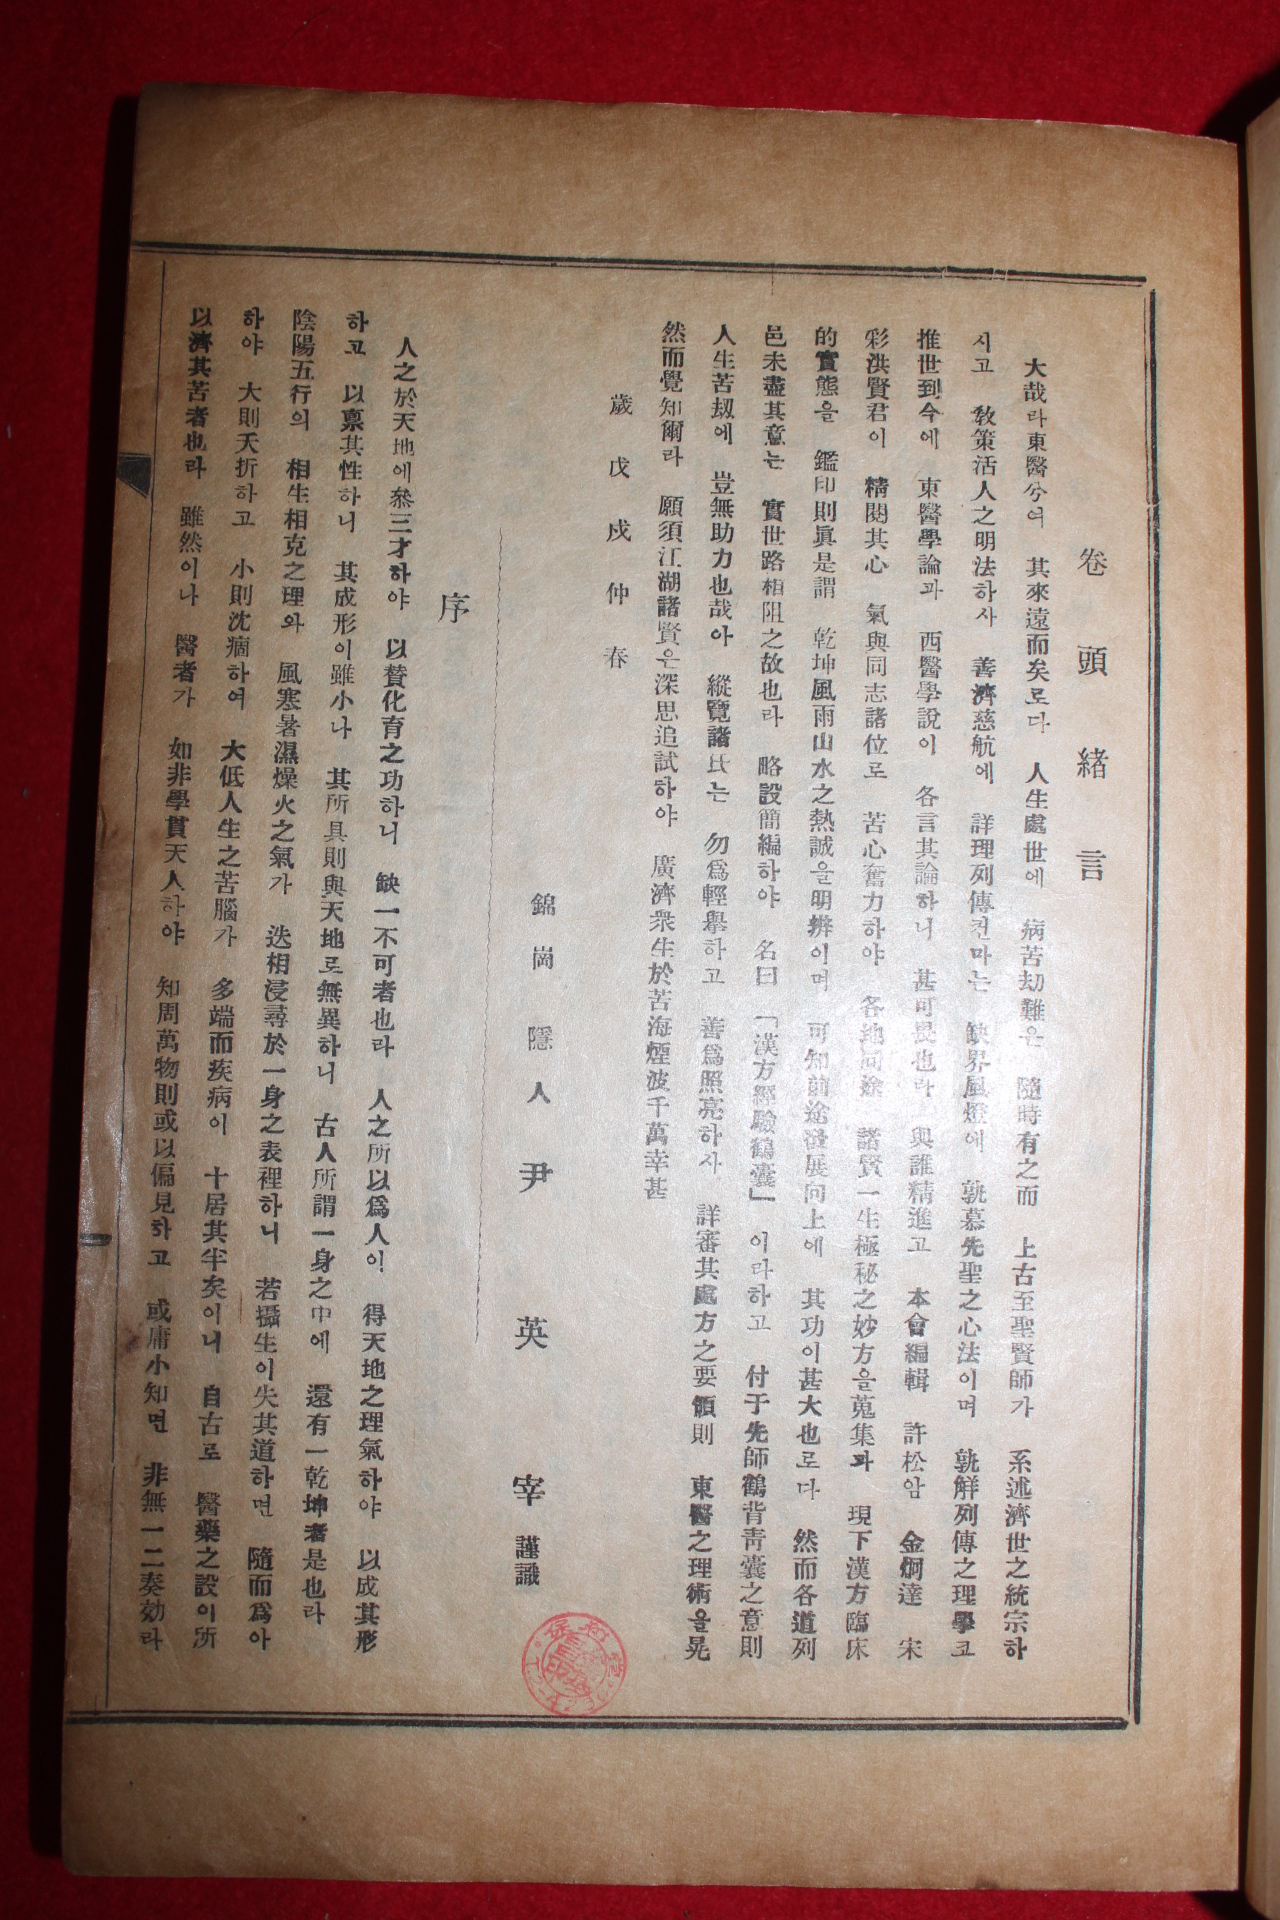 卷頭緖言
大哉라東醫学여 其來遠而矣로다 人生處世에 病苦劫難은 隨時有之而 上古至聖賢師가 系述濟世之統宗하
시고 敎策活人之明法하사 善濟慈航에 詳理列傳컨마는 缺界風燈에 孰慕先聖之心法이며 孰解列傳之理學고
推世到今에 東醫學論과 西醫學說이 各言其論하니 甚可畏也라 與誰精進고 本會編輯 許松岩 金炯達 宋
彩洪賢君이 精閱其心 氣與同志諸位로 苦心奮力하야 各地向遂 諸賢一生極秘之妙方을蒐集과 現下漢方臨床
的實態을 鑑印則眞是謂 乾坤風雨山水之熱誠을明辨이며 可知前途發展向上에 其功이甚大也로다 然而各道列
邑未盡其意는 實世路相阻之故也라 略設簡編하야 名曰「漢方經驗鶴囊」이라하고 付于先師鶴背靑囊之意則
人生苦劫에 豈無助力也哉아 縱覽諸氏는 勿爲輕擧하고 善爲照亮하사 詳審其處方之要領則 東醫之理術을晃
然而覺知爾라 願須江湖諸賢은深思追試하야 廣濟衆生於苦海煙波千萬幸甚
歲戊戌仲春
錦崗隱人尹英宰謹識
序
人之於天地에參三才하야 以賛化育之功하니 缺一不可者也라 人之所以爲人이 得天地之理氣하야 以成其形
하고 以禀其性하니 其成形이雖小나 其所具則與天地로無異하니 古人所謂一身之中에 還有一乾坤者是也라
陰陽五行의 相生相克之理와 風寒暑濕燥火之氣가 迭相浸尋於一身之表裡하니 若攝生이失其道하면 隨而爲아
하야 大則夭折하고 小則沈痼하여 大低人生之苦腦가 多端而疾病이 十居其半矣이니 自古로 醫藥之設이所
以濟其苦者也라 雖然이나 醫者가 如非學貫天人하야 知周萬物則或以偏見하고 或庸小知면 非無一二奏効라